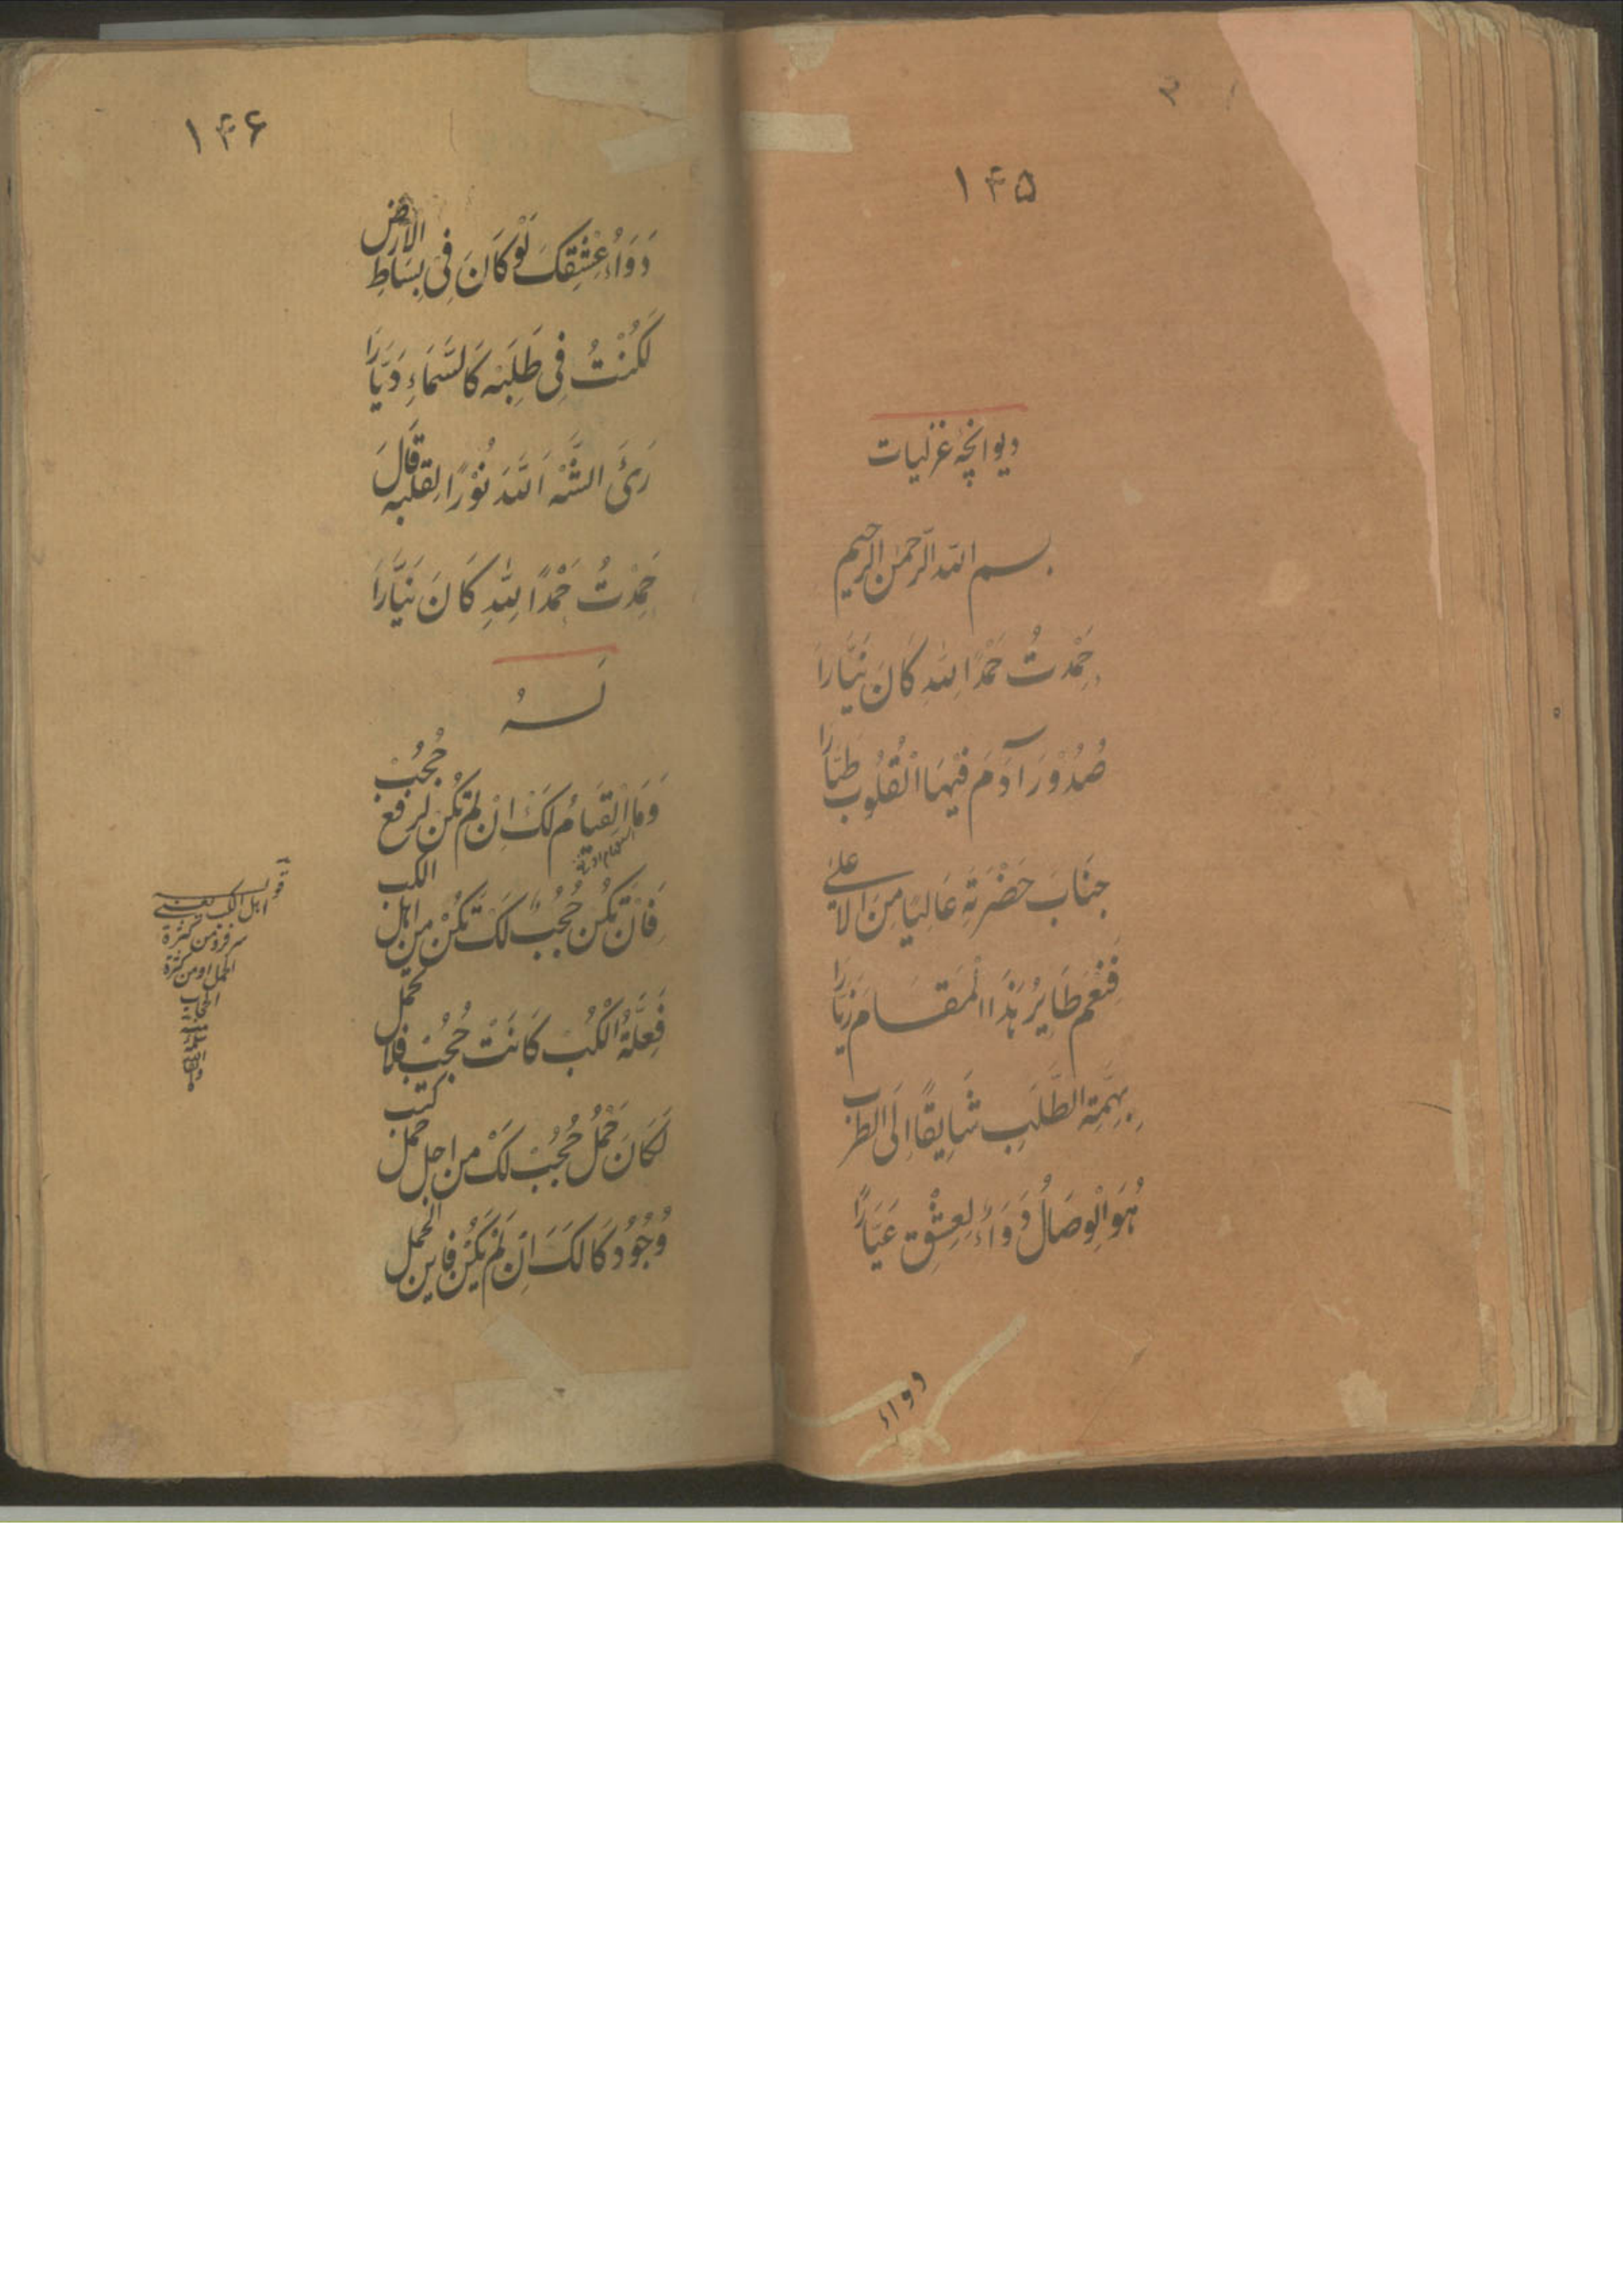 ۱۴۵
دیوانچهٔ غزلیات
بسم الله الرحمن الرحیم
حَمِدْتُ حَمْدًا لِلّٰهِ كَانَ نَیَّارَا
صُدُوْرَ آدَمَ فِیْهَا الْقُلُوْبَ طَیَّارَا
جِنَابَ حَضْرَتِهِ عَالِیًا مِنَ الاعلیٰ
فَنِعْمَ طَایِرُ هٰذَا الْمَقَامَ زَیَّارَا
بِهِمَّةِ الطَّلَبِ شَایِقًا اِلَی الطرب
هُوَ الْوِصَالُ دَوَاءُ لِعِشْقِ عَیَّارًا
دواء
۱۴۶
دَوَاءُ عِشْقِكَ لَوْ كَانَ فِیْ بِسَاطِ الارض
لَكُنْتُ فِی طَلَبِهِ كَالسَّمَاءِ دَیَّارَا
رَئَ الشَّه اَللهَ نُوْرًا لِقلبه قَالَ
حَمِدْتُ حَمْدًا لِلّٰهِ كَانَ نَیَّارَا
لَهُ
وَمَا الْقِیَامُ لَكَ اِنْ لَمْ تَكُنْ لرفع حُجُبْ
فَاِنْ تَكُنْ حُجُبٌ لَكَ تَكُنْ مِنْ اهل الكب
فَعِلَّةُ الْكُبْ كَانَتْ حُجُبْ فَلَا تحمل
لَكَانَ حَمْلُ حُجُبْ لَكَ مِن اجل حمل كتب
وُجُوْدُ كَا لَكَ اِنْ لَمْ یَكُنْ فاین الحمل
قوله
اهل الكب یعنے
من كثرة
الحمل او من كثرة
الحجاب